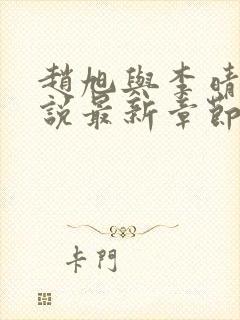 趙旭與李晴
說最新章節
卡門